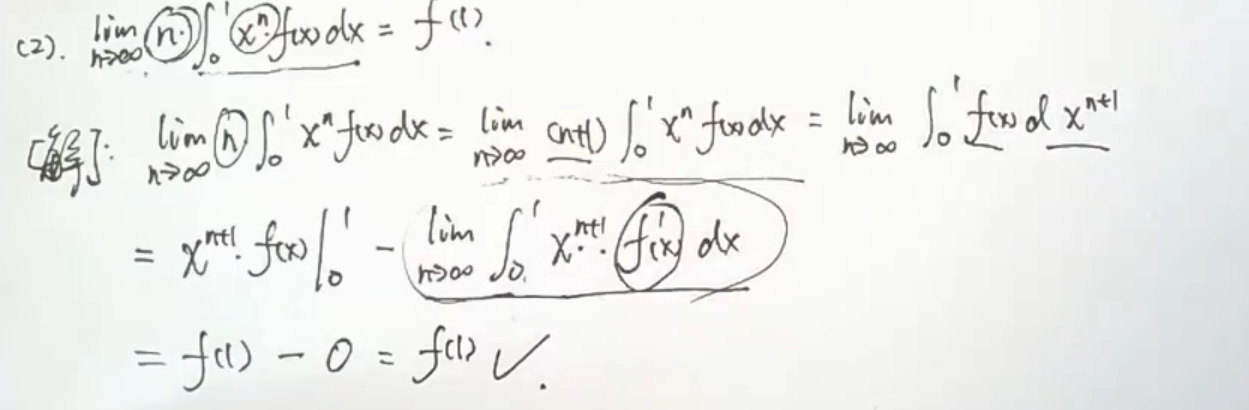 (2). lim n→∞ n·∫₀¹ xⁿ·f(x)dx = f(1).
[解]: lim n→∞ n ∫₀¹ xⁿ f(x)dx = lim n→∞ (n+1) ∫₀¹ xⁿ f(x)dx = lim n→∞ ∫₀¹ f(x) d xⁿ⁺¹
= xⁿ⁺¹·f(x)|₀¹ - lim n→∞ ∫₀¹ xⁿ⁺¹·f'(x) dx
= f(1) - 0 = f(1) ✓.